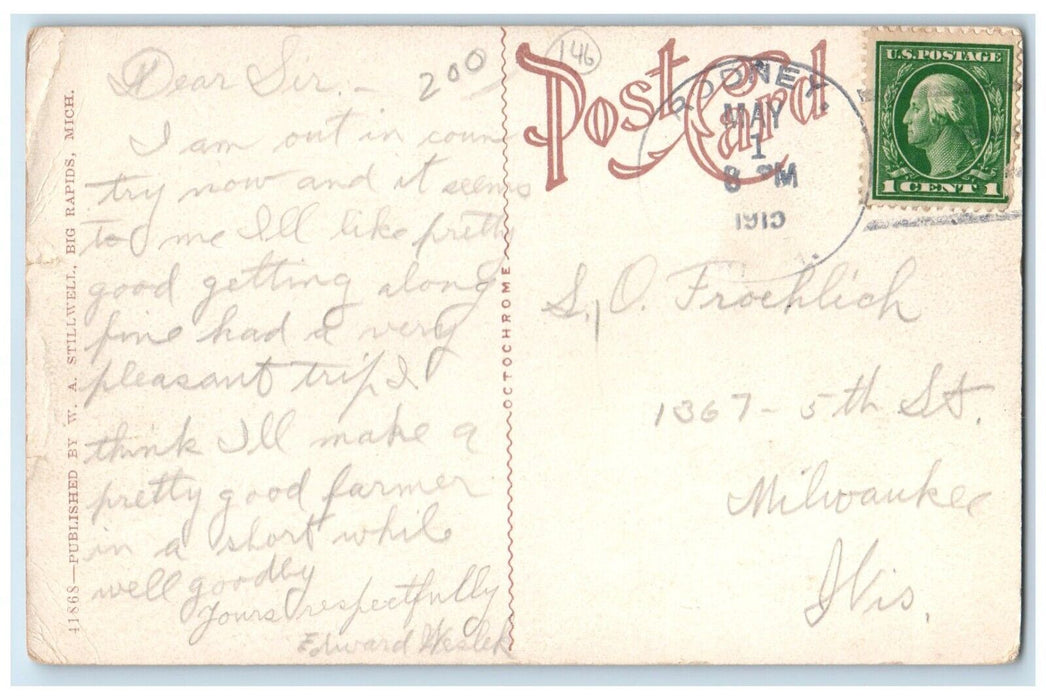 Dear Sir. –
200
I am out in coun
try now and it seems
to me Ill like pretty
good getting along
fine had a very
pleasant trip I
think Ill make a
pretty good farmer
in a short while
well goodby
Yours respectfully
Edward
41868—PUBLISHED BY W. A. STILLWELL, BIG RAPIDS, MICH.
OCTOCHROME
146
Post Card
RODNEY
MAY
1
8 PM
U.S. POSTAGE
1 CENT 1
S. O. Froehlich
1367 – 5th St.
Milwaukee
Wis.